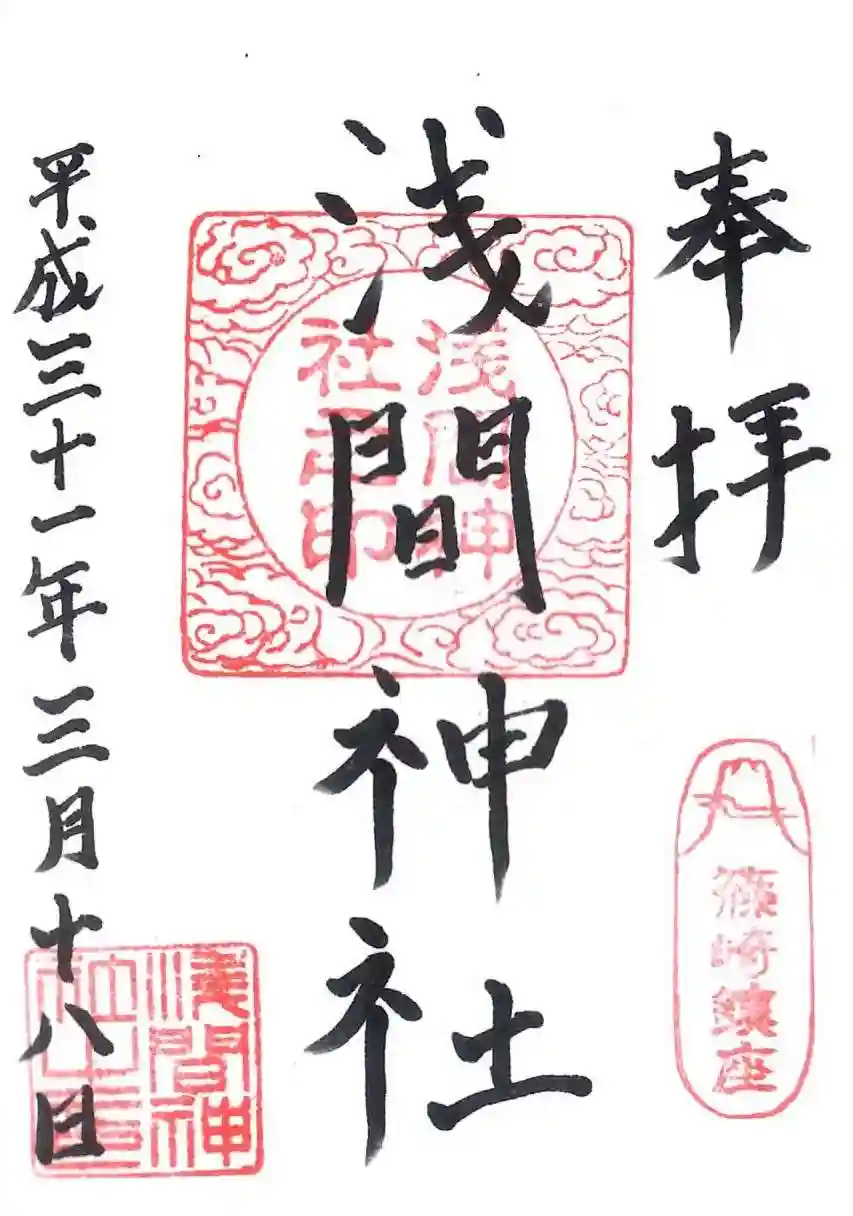 奉拝
篠崎鎮座
浅間神社
浅間神
社之印
平成三十一年三月十八日
浅間神